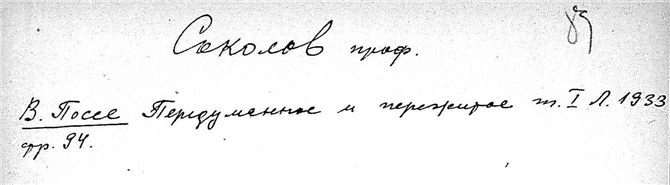 Соколов проф.
В. Поссе Передуманное и пережитое т. I Л. 1933
стр. 94.